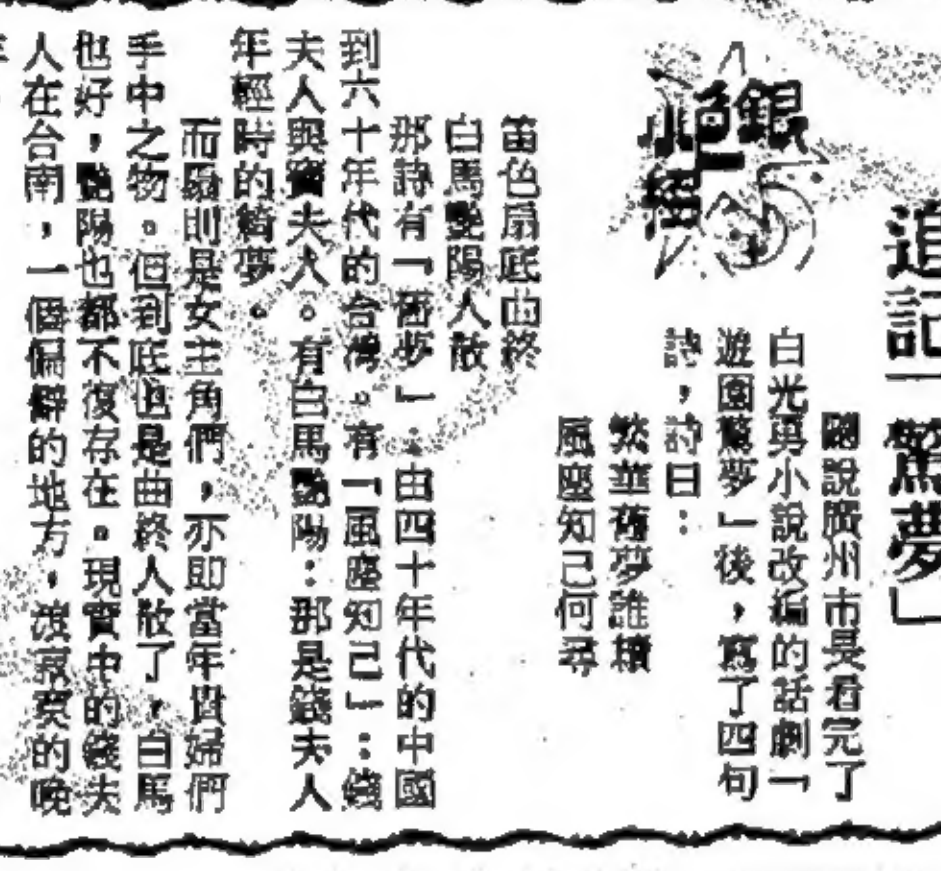 追記「驚夢」
銀色快樓
聽說廣州市長看完了
白先勇小說改編的話劇「
遊園驚夢」後,寫了四句
詩,詩曰:
繁華舊夢誰續
風塵知己何尋
笛色扇底曲終
白馬艷陽人散
那詩有「舊夢」:由四十年代的中國
到六十年代的台灣。有「風塵知己」:錢
夫人與竇夫人。有白馬艷陽:那是錢夫人
年輕時的綺夢。
而扇則是女主角們,亦即當年貴婦們
手中之物。但到底也是曲終人散了,白馬
也好,艷陽也都不復存在。現實中的錢夫
人在台南,一個偏僻的地方,渡寂寞的晚
年。